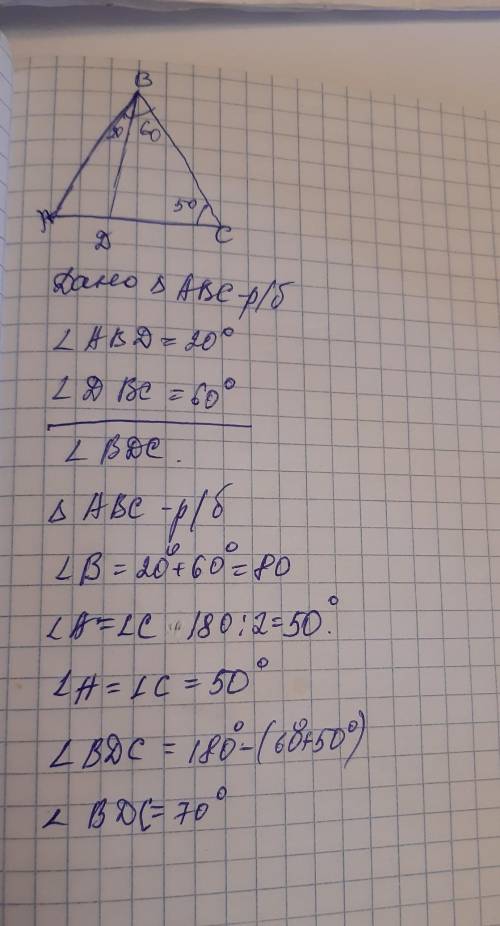 B
20 60
A
50
D
C
Дано Δ ABC - р/б
∠ ABD = 20°
∠ DBC = 60°
∠ BDC.
Δ ABC - р/б
∠B = 20°+60°=80
∠A=∠C 180:2=50°.
∠A=∠C = 50°
∠BDC = 180°-(60°+50°)
∠ BDC=70°